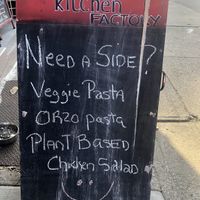 KITCHEN
FACTORY
NEED A SIDE?
Veggie Pasta
ORZO pasta
PLANT BASED
Chicken Salad